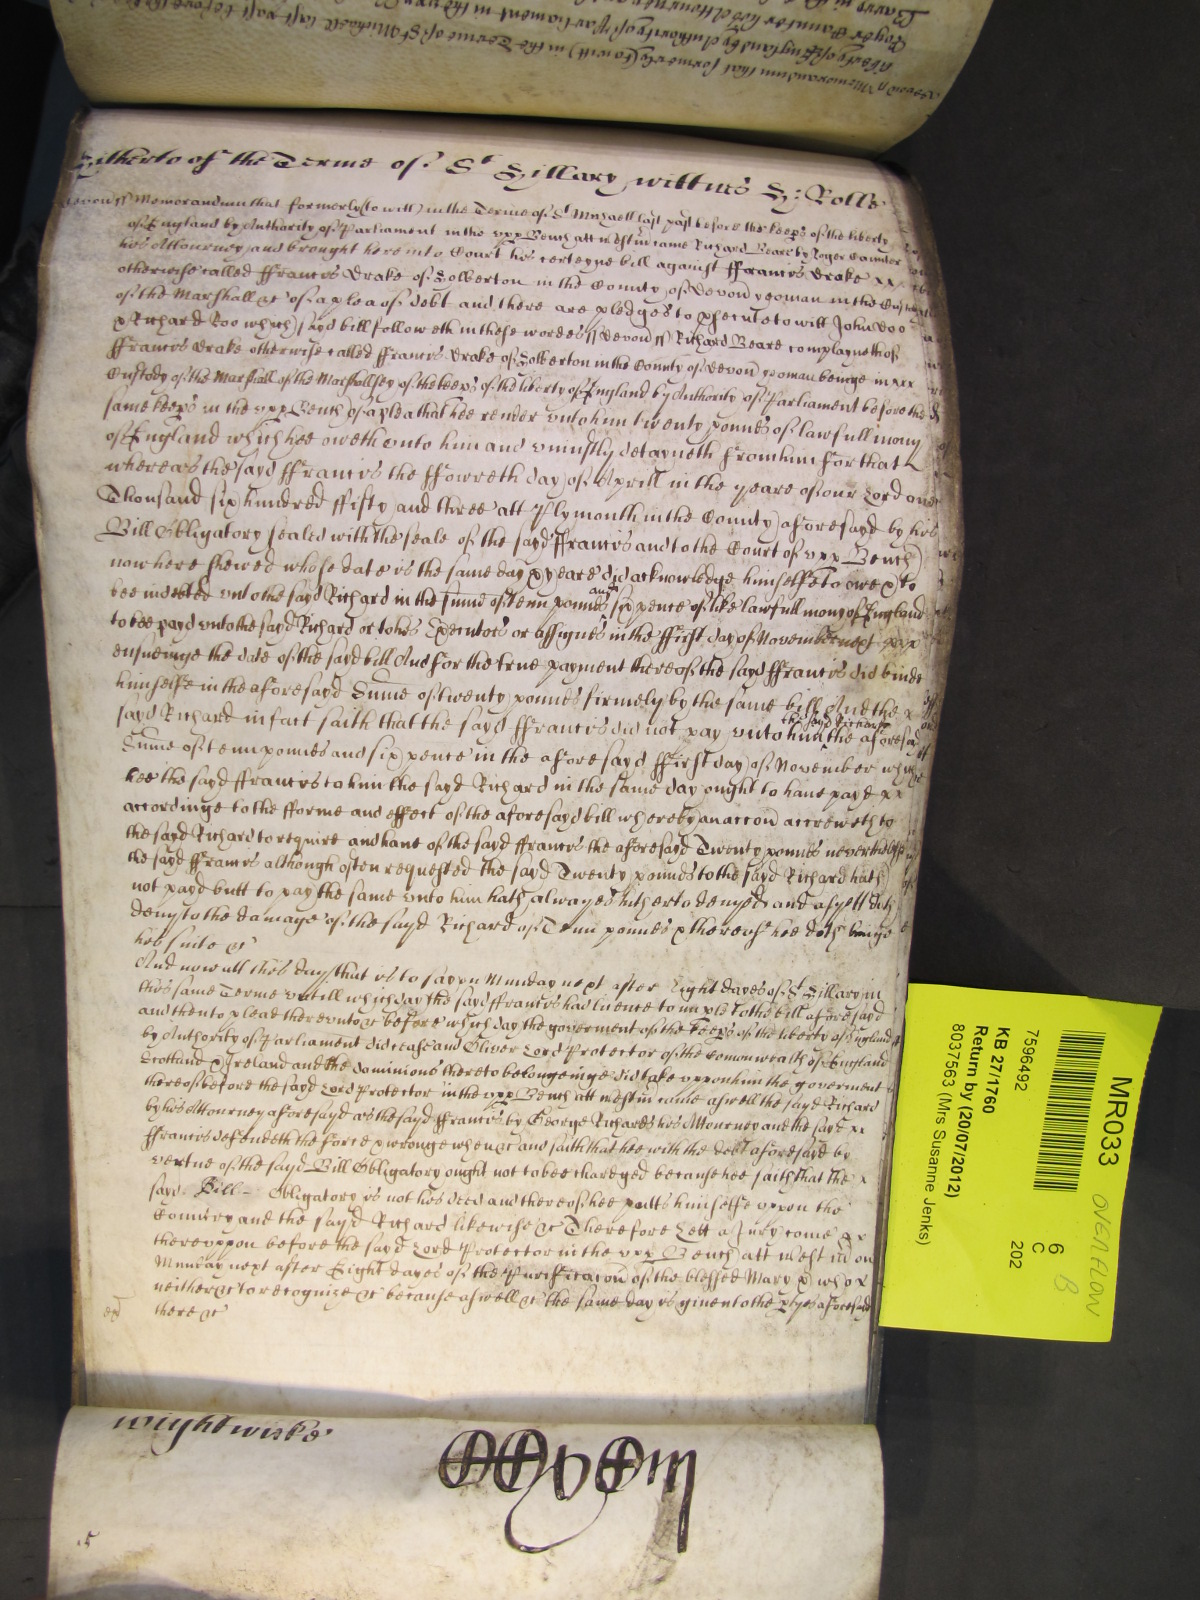 Hitherto of the Terme of St Hillary wittnes H: Rolle
Devon ss Memorandum that formerly (to witt) in the Terme of St Michaell last past before the keeps of the liberty
of England by Authority of Parliament in the vpp Bench att Westm came Richard Beare by Roger Caunter
his Attourney and brought here into Court his certeyne bill against ffrancis Drake xx
otherwise called ffrancis Drake of Holberton in the County of Devon yeoman in the Custody
of the Marshall &c of a plea of debt and there are pledges to psecute to witt John Doo
& Richard Roo which sayd bill followeth in these wordes ss Devon ss Richard Beare complayneth of
ffrancis Drake otherwise called ffrancis Drake of Holberton in the County of Devon yeoman beinge in xxx
Custody of the Marshall of the Marshallsey of the keeps of the liberty of England by Authority of Parliament before the
same keeps in the vpp Bench of a plea that hee render vnto him twenty pounds of lawfull mony
of England which hee oweth vnto him and vniustly detayneth from him for that
whereas the sayd ffrancis the ffowreth day of Aprill in the yeare of our Lord one
Thousand six hundred ffifty and three att Plymouth in the County aforesayd by his
Bill Obligatory sealed with the seale of the sayd ffrancis and to the Court of vpp Bench
now here shewed whose date is the same day & yeare did acknowledge himselfe to owe & to
bee indebted vnto the sayd Richard in the Summe of Tenn pounds and six pence of like lawfull mony of England
to bee payd vnto the sayd Richard or to his Executors or assignes in the ffirst day of November next
ensueinge the date of the sayd bill And for the true payment thereof the sayd ffrancis did binde
himselfe in the aforesayd Summe of twenty pounds firmely by the same bill And the x
sayd Richard in fact saith that the sayd ffrancis did not pay vnto him the sayd Richard the aforesayd
Summe of tenn pounds and six pence in the aforesayd ffirst day of November which
hee the sayd ffrancis to him the sayd Richard in the same day ought to haue payd xx
accordinge to the fforme and effect of the aforesayd bill whereby an accon accreweth to
the sayd Richard to require and haue of the sayd ffrancis the aforesayd Twenty pounds neverthelesse
the sayd ffrancis although often requested the sayd Twenty pounds to the sayd Richard hath
not payd butt to pay the same vnto him hath alwayes hitherto denyed and as yett doth
deny to the damage of the sayd Richard of Tenn pounds & thereof hee doth bringe
his suite &c
And now att this day that is to say on Munday next after Eight dayes of St Hillary in
this same Terme vntill which day the sayd ffrancis had licence to imple to the bill aforesayd
and then to plead therevnto &c before which day the goverment of the keeps of the liberty of England
by Authority of Parliament did cease and Oliver Lord Protector of the Comonwealth of England
Scotland & Ireland and the dominions thereto belongeinge did take vppon him the goverment
thereof before the sayd Lord Protector in the vpp Bench att Westm came aswell the sayd Richard
by his Attourney aforesayd as the sayd ffrancis by George Richards his Attourney and the sayd xx
ffrancis defendeth the force & wronge when &c and saith that hee with the debt aforesayd by
vertue of the sayd Bill Obligatory ought not to bee chardged because hee saith that the x
sayd Bill Obligatory is not his deed and thereof hee putts himselfe vppon the
Country and the sayd Richard likewise &c Therefore Lett a Jury come xx
therevppon before the sayd Lord Protector in the vpp Bench att Westm on
Munday next after Eight dayes of the Purificacon of the blessed Mary & who x
neither &c to recognize &c because aswell &c the same day is given to the ptyes aforesayd
there &c
wightwicke
MR033
OVERFLOW
B
6
C
202
7596492
KB 27/1760
Return by (20/07/2012)
8037563 (Mrs Susanne Jenks)